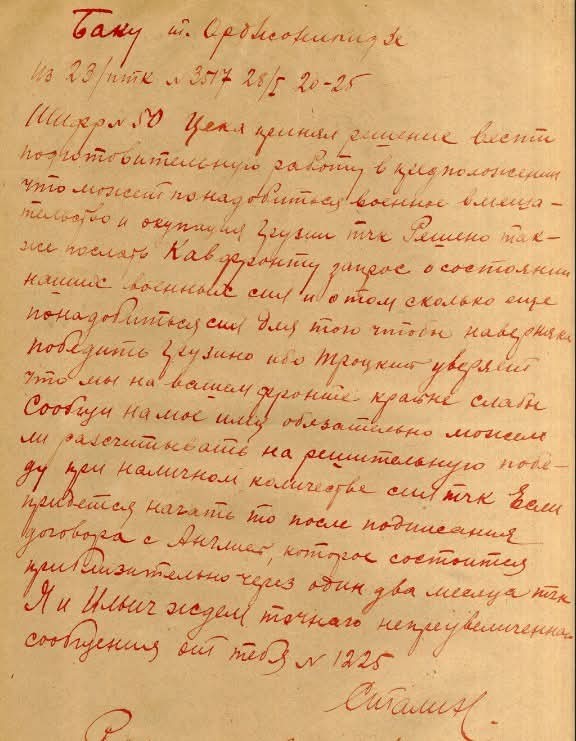 Баку т. Орджоникидзе
Из 23/птк № 3517 28/I 20-25
Шифр № 50 Цека принял решение вести
подготовительную работу в предположении
что может понадобиться военное вмеша-
тельство и окупация Грузии тчк Решено так-
же послать Кавфронту запрос о состоянии
наших военных сил и о том сколько еще
понадобиться сил для того чтобы наверняка
победить Грузию ибо Троцкий уверяет
что мы на вашем фронте крайне слабы
Сообщи на мое имя обязательно можем
ли разсчитывать на решительную побе-
ду при наличном количестве сил тчк Если
придется начать то после подписания
договора с Англией, которое состоится
приблизительно через один два месяца тчк
Я и Ильич ждем точнаго непреувеличеннаго
сообщения от тебя № 1225
Сталин.